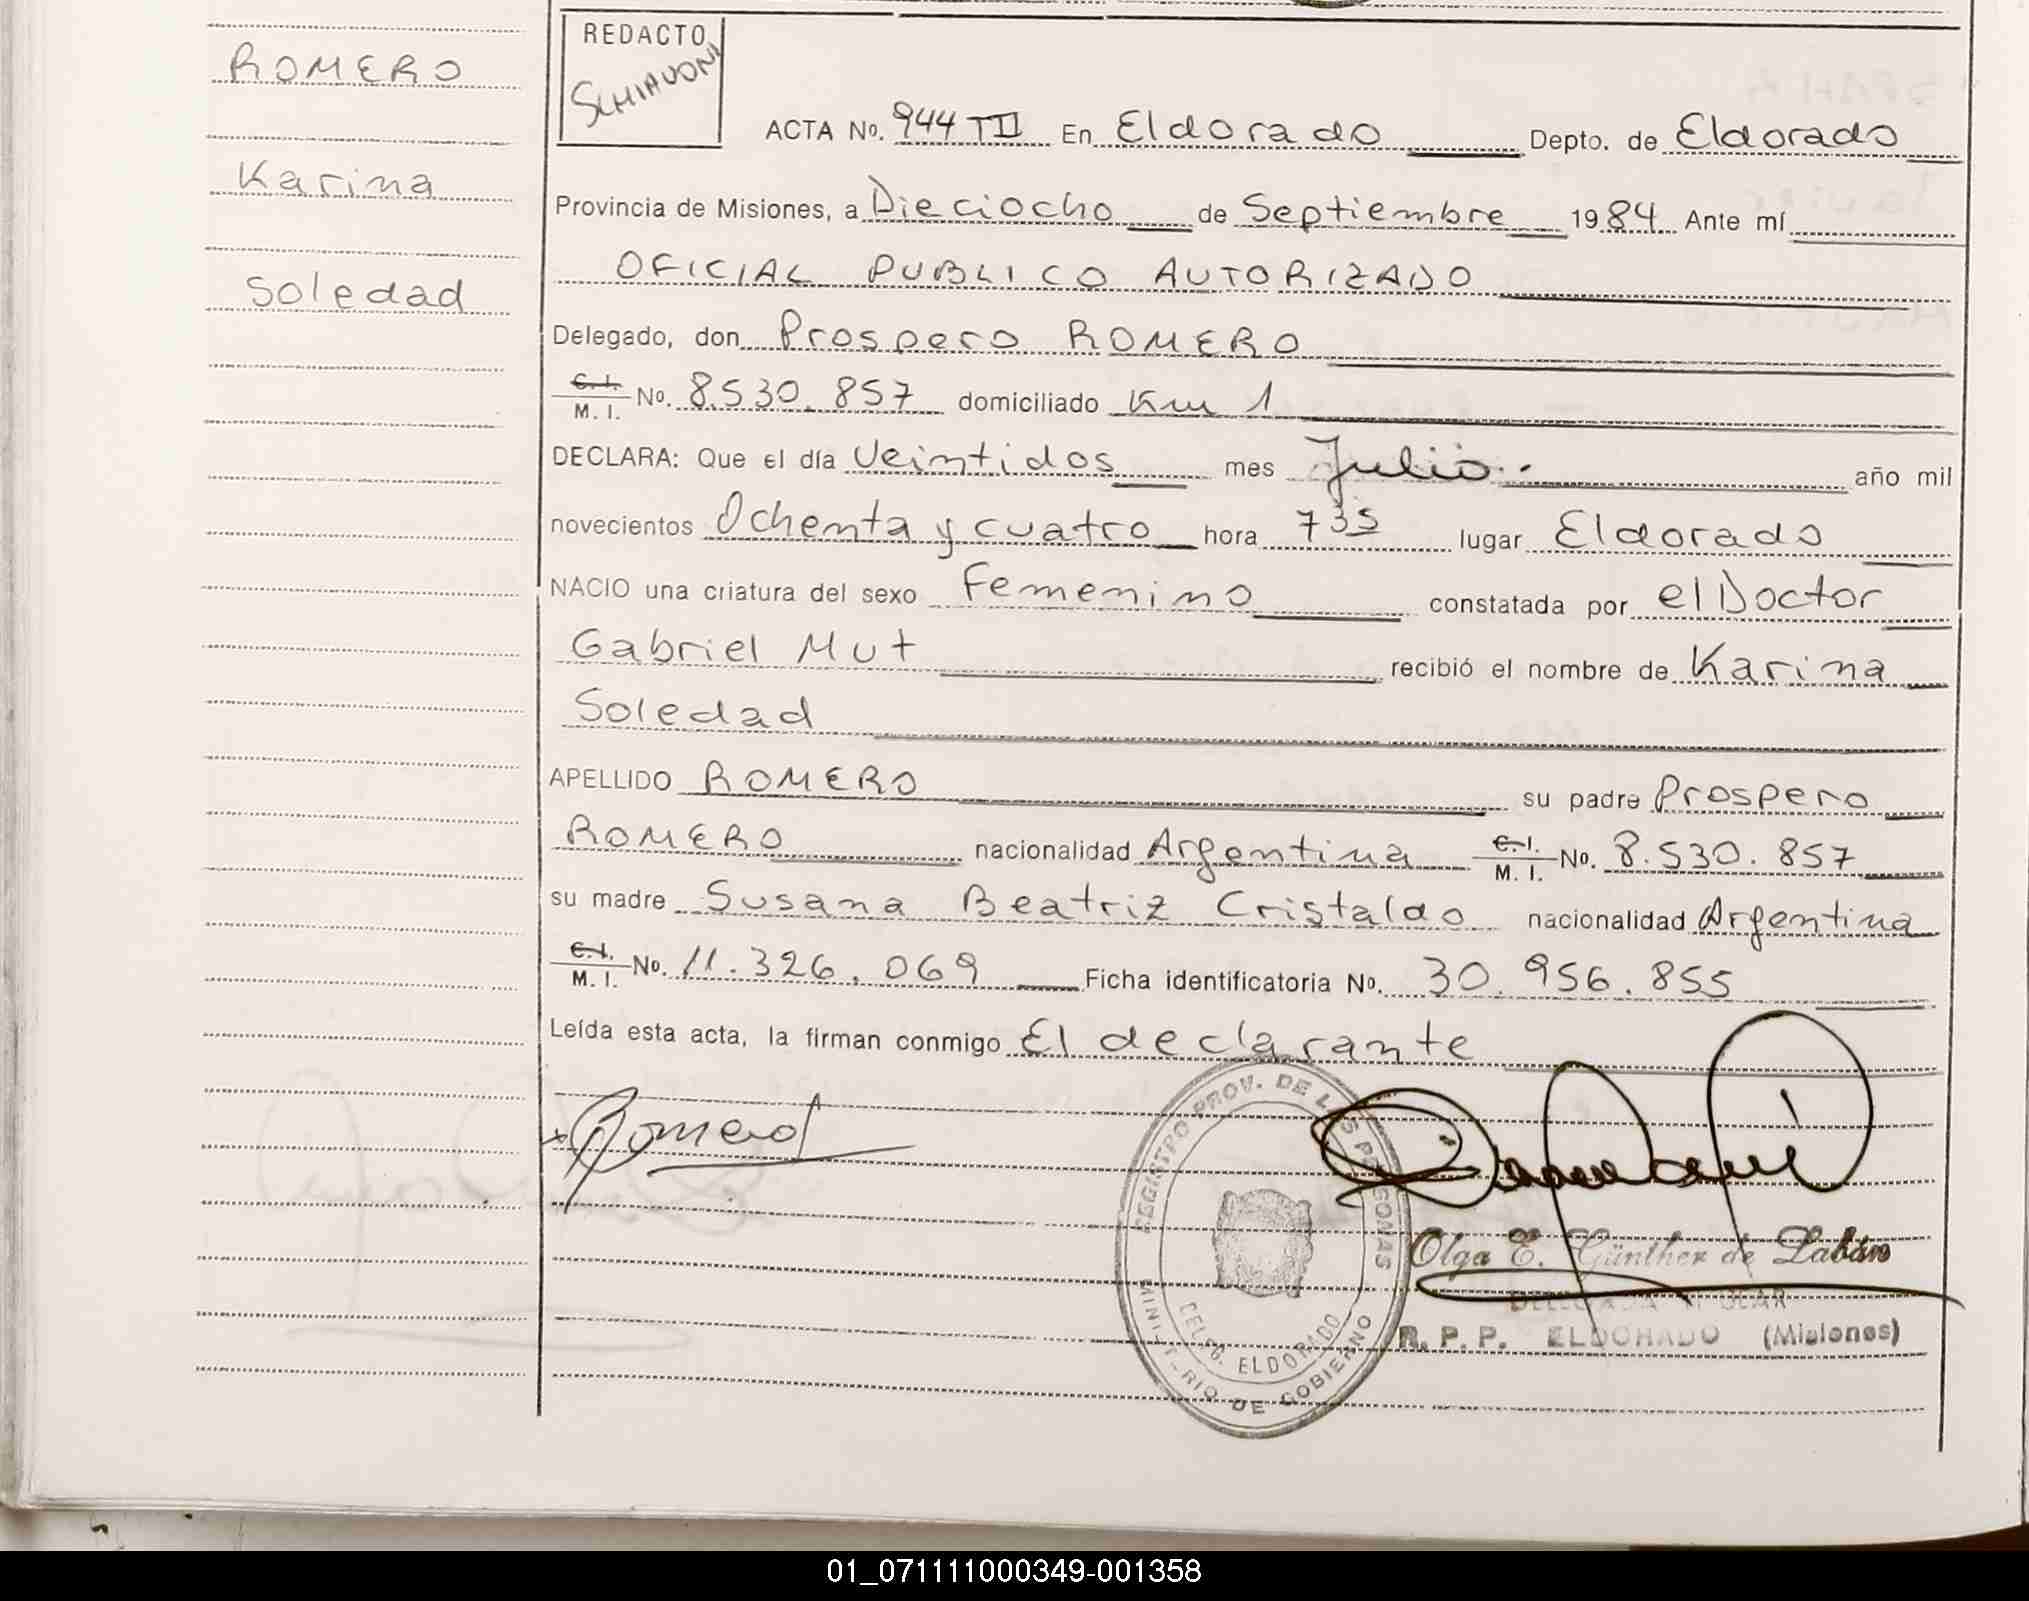 ROMERO
Karina
Soledad
REDACTO
SCHIAVONI
ACTA No. 944 TII En Eldorado Depto. de Eldorado
Provincia de Misiones, a Dieciocho de Septiembre 1984 Ante mí
OFICIAL PUBLICO AUTORIZADO
Delegado, don Prospero ROMERO
C. I. M. I. No. 8.530.857 domiciliado Km 1
DECLARA: Que el día Veintidos mes Julio.. año mil
novecientos Ochenta y cuatro hora 7 35 lugar Eldorado
NACIO una criatura del sexo Femenino constatada por el Doctor
Gabriel Mut recibió el nombre de Karina
Soledad
APELLIDO ROMERO su padre Prospero
ROMERO nacionalidad Argentina C. I. M. I. No. 8.530.857
su madre Susana Beatriz Cristaldo nacionalidad Argentina
C. I. M. I. No. 11.326.069 Ficha identificatoria No. 30.956.855
Leída esta acta, la firman conmigo El declarante
Romero
REGISTRO PROV. DE LAS PERSONAS
MINISTERIO DE GOBIERNO
DELEG. ELDORADO
Olga E. Günther de Labán
DELEGADA TITULAR
R. P. P. ELDORADO (Misiones)
01_071111000349-001358